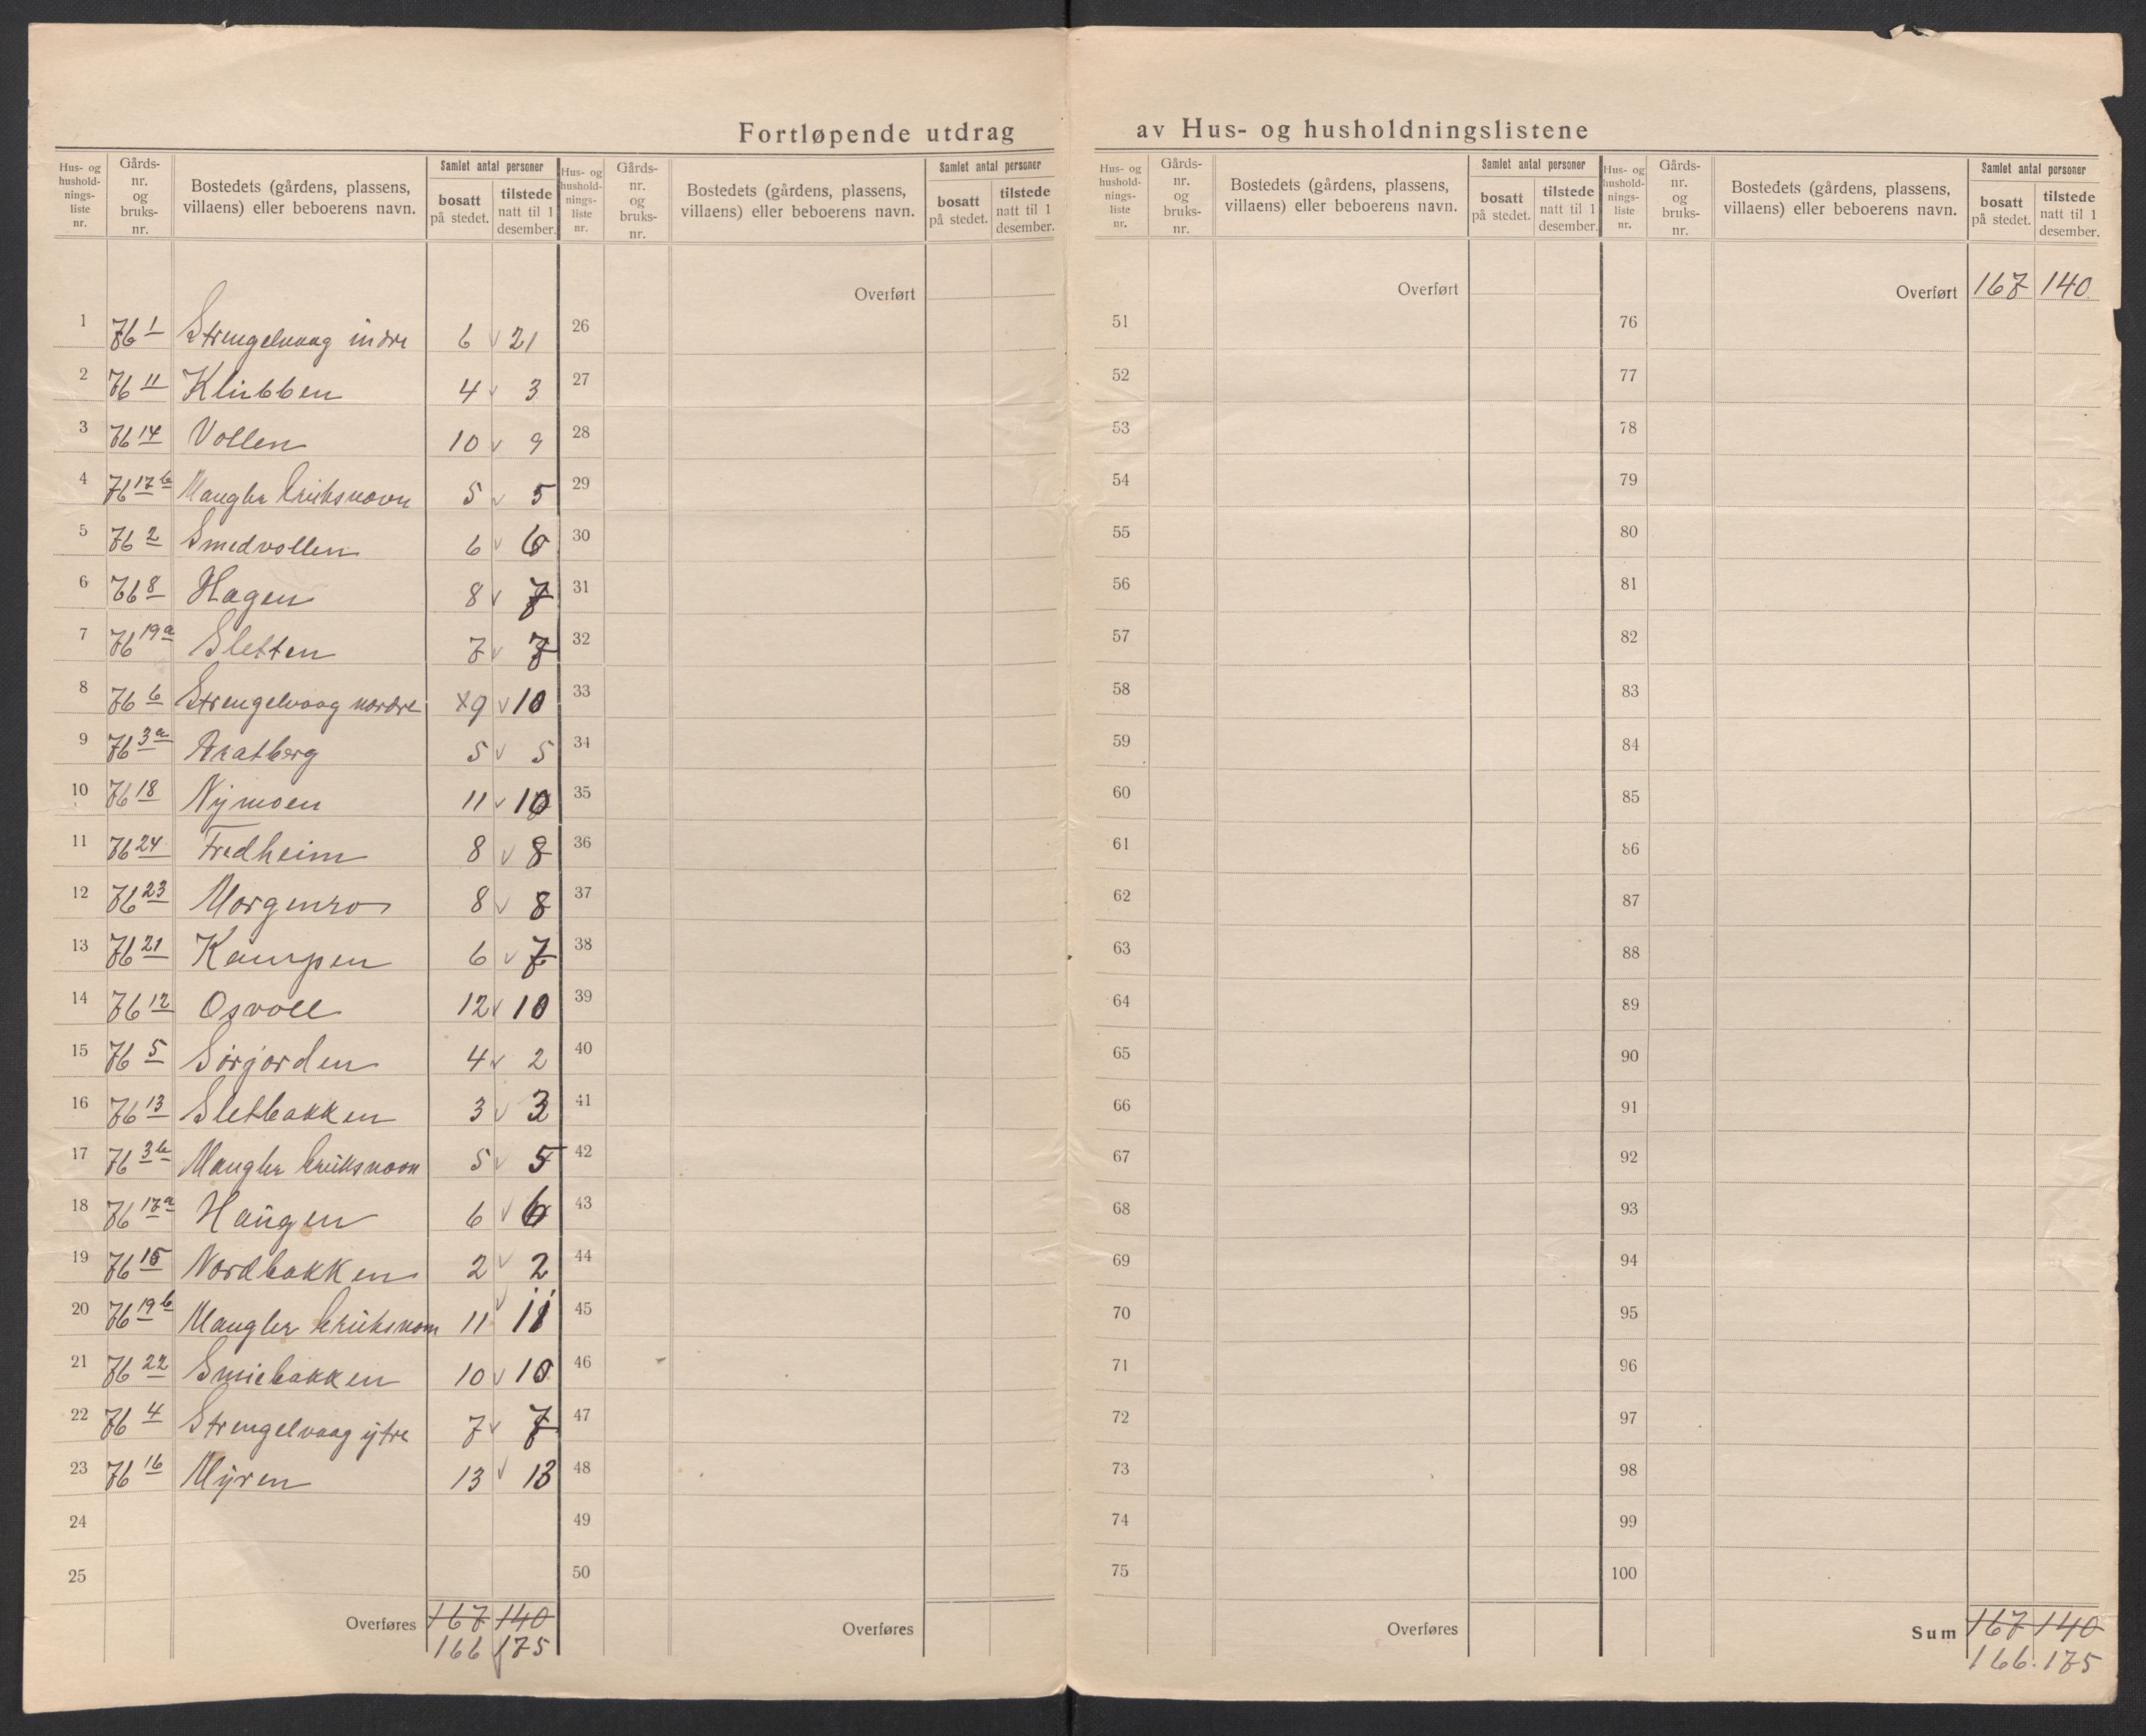 Fortløpende utdrag av Hus- og husholdningslistene
Hus- og hushold-nings-liste nr. Gårds-nr. og bruks-nr. Bostedets (gårdens, plassens, villaens) eller beboerens navn. Samlet antal personer bosatt på stedet. tilstede natt til 1 desember.
Hus- og hushold-nings-liste nr. Gårds-nr. og bruks-nr. Bostedets (gårdens, plassens, villaens) eller beboerens navn. Samlet antal personer bosatt på stedet. tilstede natt til 1 desember.
Hus- og hushold-nings-liste nr. Gårds-nr. og bruks-nr. Bostedets (gårdens, plassens, villaens) eller beboerens navn. Samlet antal personer bosatt på stedet. tilstede natt til 1 desember.
Hus- og hushold-nings-liste nr. Gårds-nr. og bruks-nr. Bostedets (gårdens, plassens, villaens) eller beboerens navn. Samlet antal personer bosatt på stedet. tilstede natt til 1 desember.
1 76 1 Strengelvaag indre 6 v 21
2 76 11 Klubben 4 v 3
3 76 14 Vollen 10 v 9
4 76 17b Mangler bruksnavn 5 v 5
5 76 2 Smedvollen 6 v 6
6 76 8 Hagen 8 v 7
7 76 19a Sletten 7 v 7
8 76 6 Strengelvaag nordre x9 v 10
9 76 3a Bratberg 5 v 5
10 76 18 Nymoen 11 v 10
11 76 24 Fredheim 8 v 8
12 76 23 Morgenro 8 v 8
13 76 21 Kampen 6 v 7
14 76 12 Osvoll 12 v 10
15 76 5 Sørjorden 4 v 2
16 76 13 Sletbakken 3 v 3
17 76 3b Mangler bruksnavn 5 v 5
18 76 17a Haugen 6 v 6
19 76 15 Nordbakken 2 v 2
20 76 19b Mangler bruksnavn 11 v 11
21 76 22 Smiebakken 10 v 10
22 76 4 Strengelvaag ytre 7 v 7
23 76 16 Myren 13 v 13
24
25
Overføres 167 140
166 175
Overført
26
27
28
29
30
31
32
33
34
35
36
37
38
39
40
41
42
43
44
45
46
47
48
49
50
Overføres
Overført
51
52
53
54
55
56
57
58
59
60
61
62
63
64
65
66
67
68
69
70
71
72
73
74
75
Overføres
Overført 167 140
76
77
78
79
80
81
82
83
84
85
86
87
88
89
90
91
92
93
94
95
96
97
98
99
100
Sum 167 140
166. 175